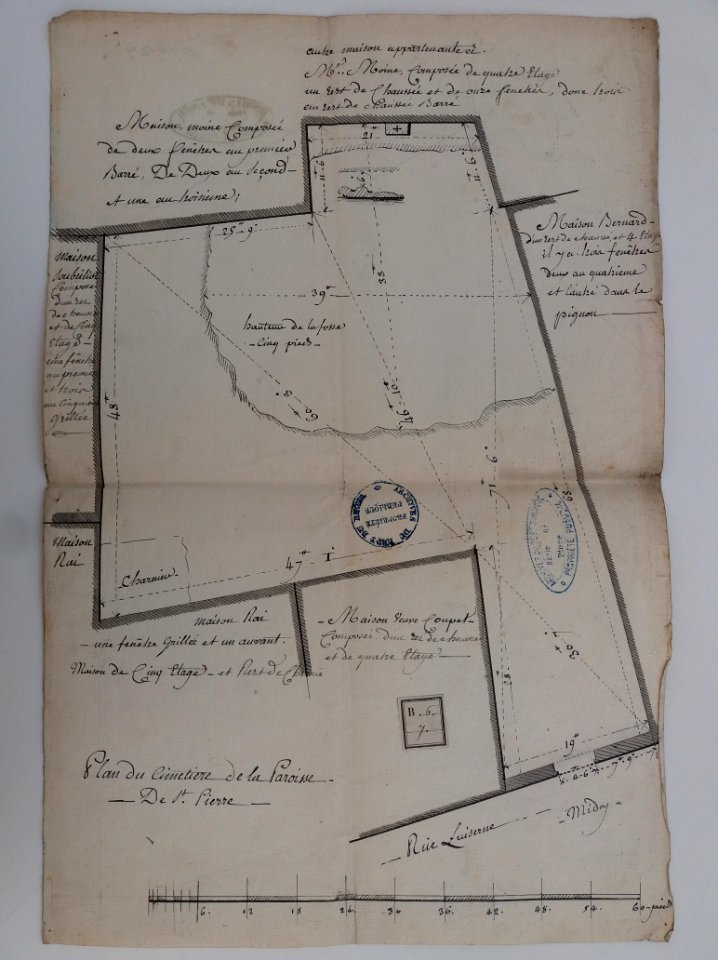 autre maison appartenante à
Mr Moine, Composée de quatre Etage
un rert de Chaussée et de onze fenêtres, donc trois
au rert de chaussée Barré
Maison, moine Composée
de deux fenêtres au premier
Barré, De Deux au Second
Et une au troisieme;
21
11-6
11-6
6
33
25-9
39
Maison Bernard
d'un rert de chaussé, et 4 Etage
il y en trois fenêtres
deux au quatrieme
et l'autre dans le
pignon
maison
Soubeillat
Composée
d'un rez
de chausse
et de Cinq
Etage
une fenêtre
au premier
et trois
au Cinquie
Grillée
hauteur de la fosse
Cinq pieds
48
60-8
46-10
71-6
68
ARCHIVES
PROPRIÉTÉ
PUBLIQUE
PROPRIÉTÉ PUBLIQUE
Série
Pièce
maison
Rai
Charnier
47-1
maison Rai
une fenêtre Grillée et un auvant.
Maison de Cinq Etage et Rert de Chaussé
Maison Veuve Coupet
Composée d'un rez de chaussée
et de quatre Etage
30
28
B-6
7
19
4-6
7-9
Plan du Cimetiere de la Paroisse
De St. Pierre
Rue Luiserne
Midy
6. 12 18 24 30 36 42 48 54 60 pieds